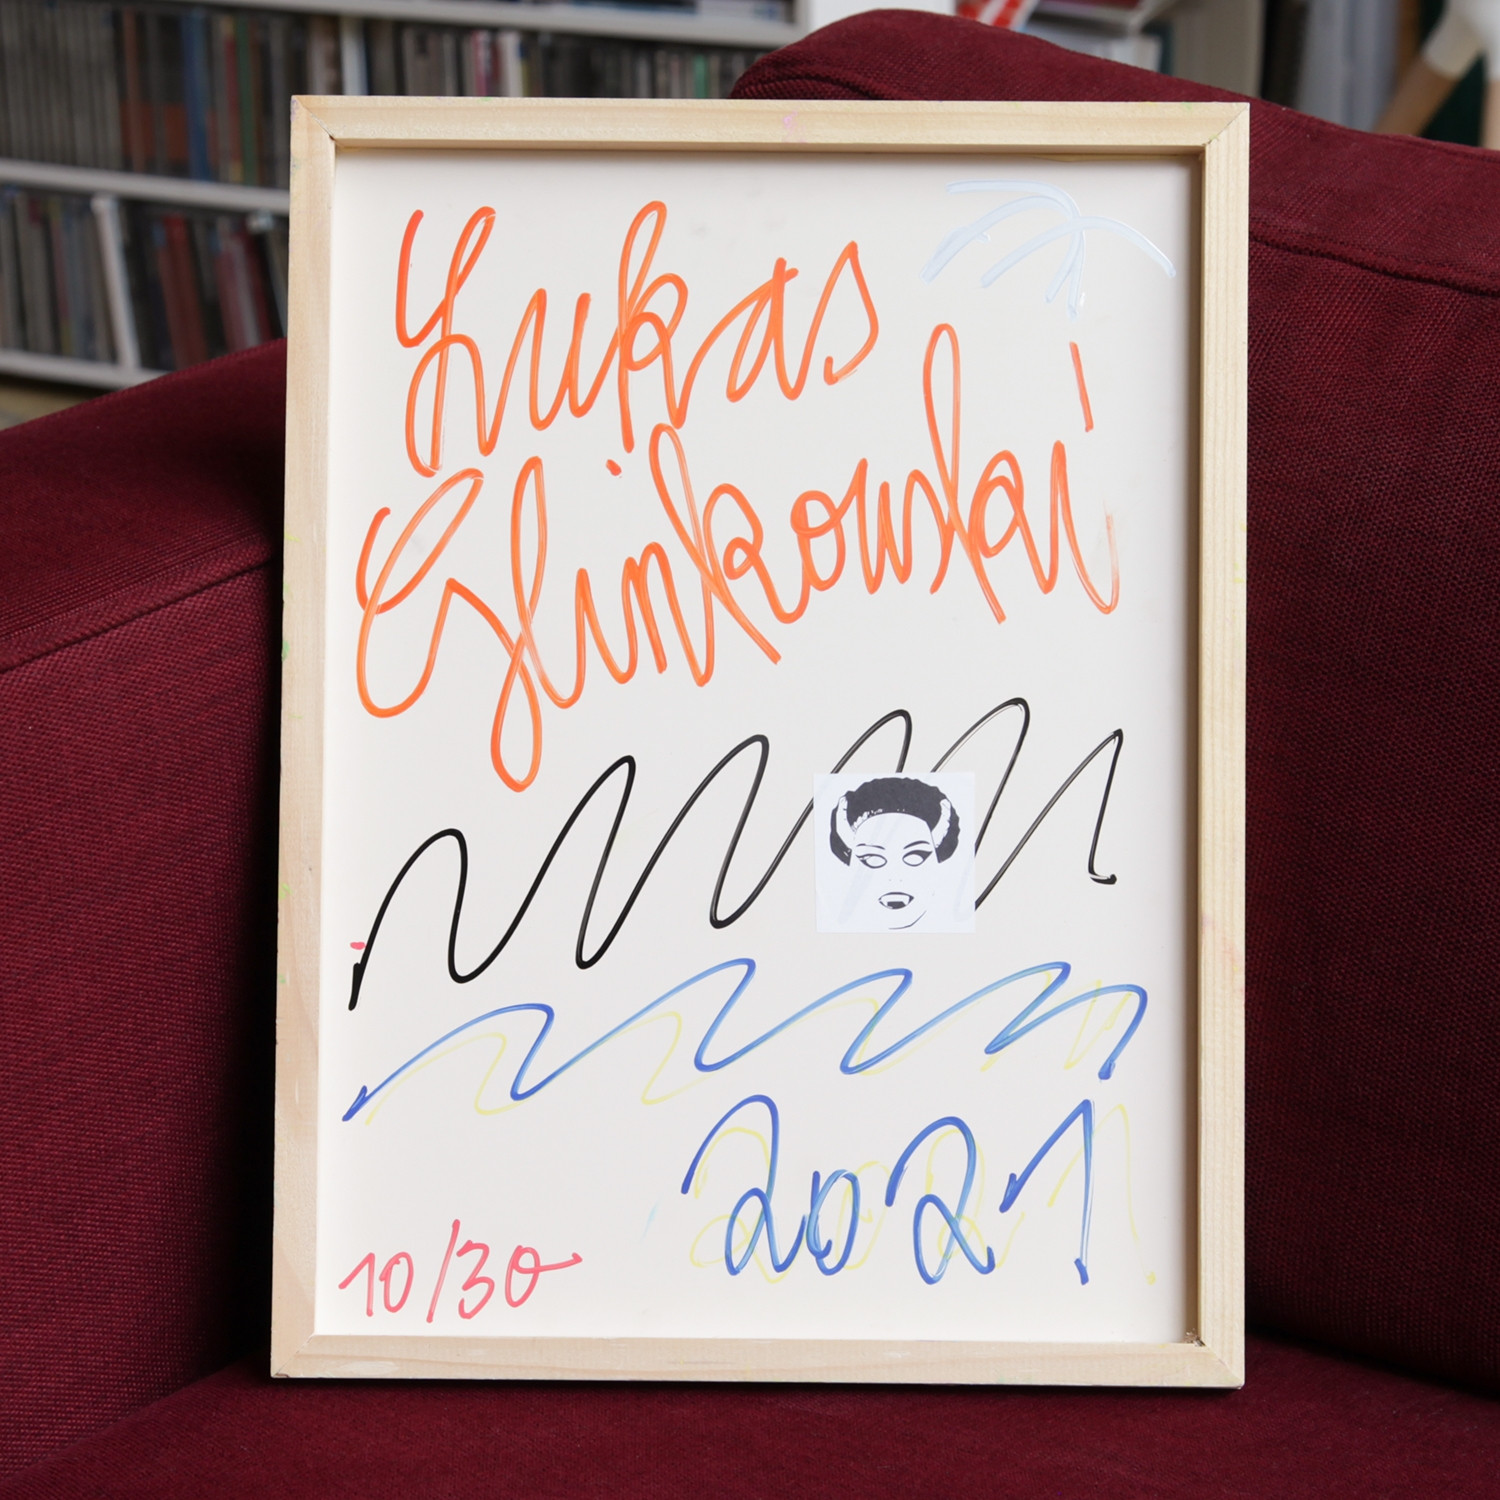 Lukas
Glinkowski
2021
10/30